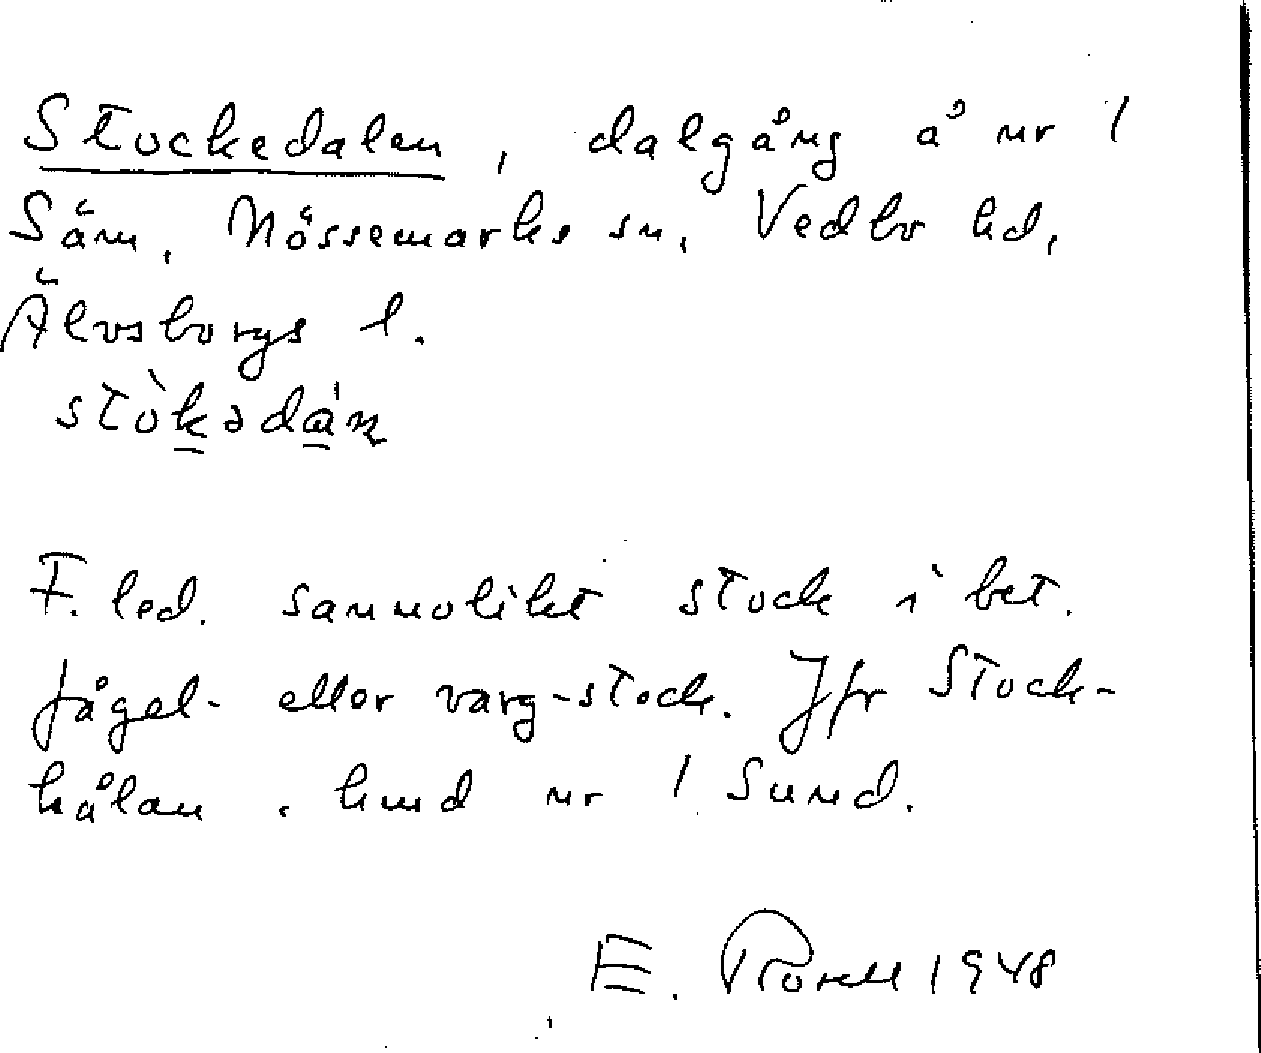 Stockedalen, dalgång å nr 1
Säm, Nössemarks sn, Vedbo hd,
Älvsborgs l.
stòkədán
F. led. sannolikt stock i bet.
fågel- eller varg-stock. Jfr Stock-
hålan. hmd nr 1 Sund.
E. 1948